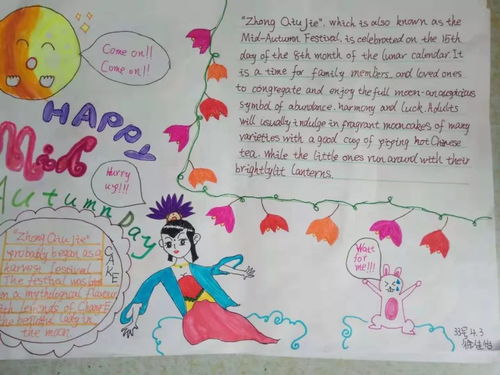 Come on!!
Come on!!
HAPPY
Mid
Autumn Day
Hurry
up!!!
"Zhong Qiu Jie", which is also known as the
Mid-Autumn Festival, is celebrated on the 15th
day of the 8th month of the lunar calendar. It
is a time for family members and loved ones
to congregate and enjoy the full moon-an auspicious
symbol of abundance, harmony and luck. Adults
will usually indulge in fragrant mooncakes of many
varieties with a good cup of piping hot Chinese
tea, While the little ones run around with their
brightly lit lanterns.
"Zhong Qiu Jie"
probably began as a
harvest festival
The festival was
a mythological flavour
of
the beautiful lady in
the moon
CAKE
Wait
for
me!!!
4.3